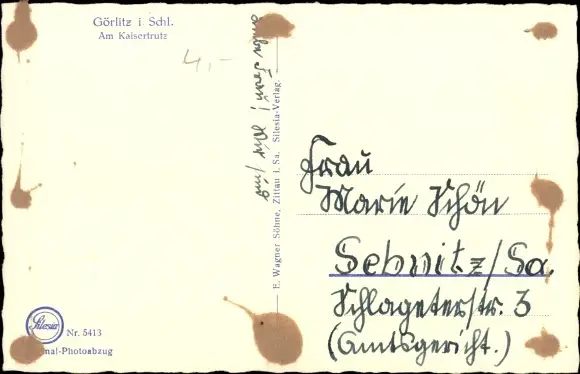 Görlitz i. Schl.
Am Kaisertrutz
4,-
E. Wagner Söhne, Zittau i. Sa. Silesia-Verlag.
Frau
Marie Schön
Sebnitz/Sa.
Schlageterstr. 3
(Amtsgericht.)
Silesia
Nr. 5413
nal-Photoabzug